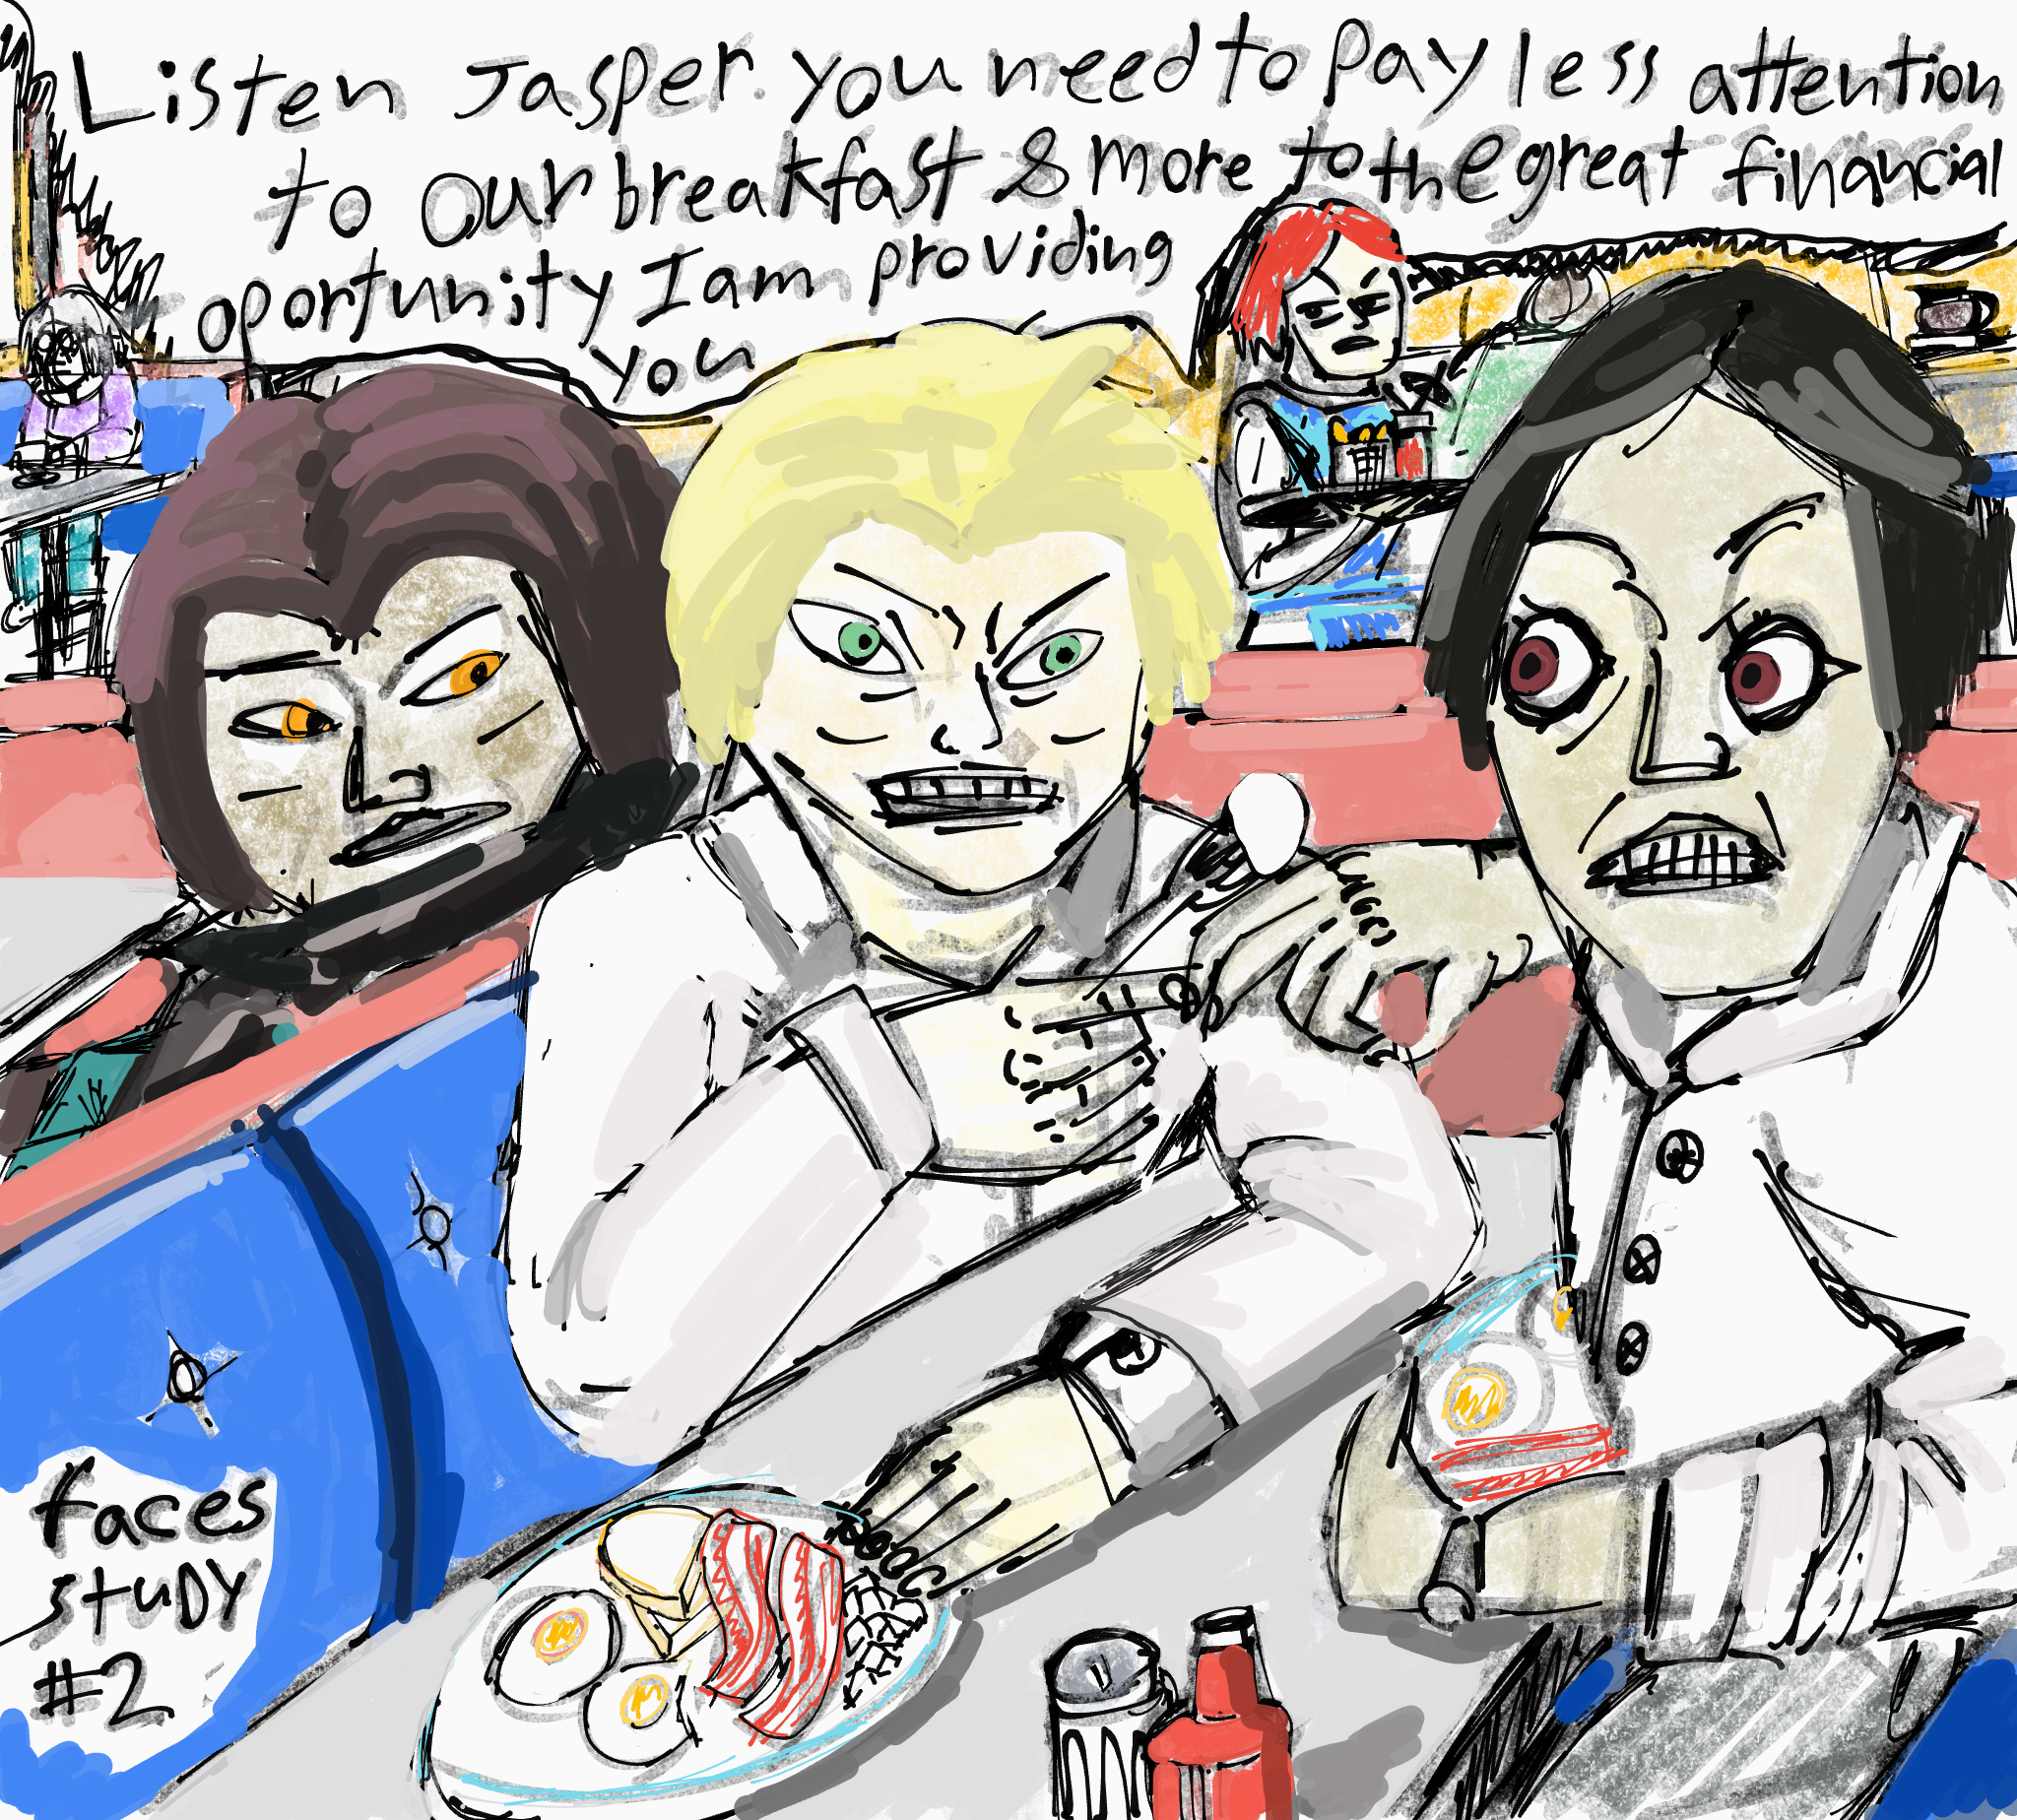 Listen Jasper. you need to pay less attention
to our breakfast & more to the great financial
oportunity I am providing
you
faces
stuDY
#2